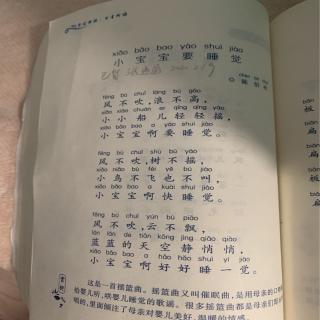 xiǎo bǎo bao yào shuì jiào
小宝宝要睡觉
fēng bù chuī làng bù gāo
风不吹,浪不高,
xiǎo xiǎo chuán ér qīng qīng yáo
小小船儿轻轻摇,
xiǎo bǎo bao a yào shuì jiào
小宝宝啊要睡觉。
fēng bù chuī shù bù yáo
风不吹,树不摇,
xiǎo niǎo bù fēi yě bú jiào
小鸟不飞也不叫,
xiǎo bǎo bao a kuài shuì jiào
小宝宝啊快睡觉。
fēng bù chuī yún bù piāo
风不吹,云不飘,
lán lán de tiān kōng jìng qiāo qiāo
蓝蓝的天空静悄悄,
xiǎo bǎo bao a hǎo hǎo shuì yí jiào
小宝宝啊好好睡一觉。
这是一首摇篮曲。摇篮曲又叫催眠曲,是用母亲的口吻
给婴儿听,哄婴儿睡觉的歌谣。很多摇篮曲都是母亲们
唱的,里面倾注了母亲对婴儿美好、温暖的情感。
扁
被
扁
被